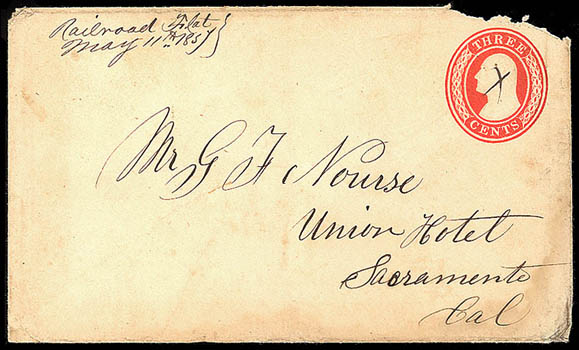 Railroad Flat
May 11th 1857
THREE
CENTS
Mr G F Nourse
Union Hotel
Sacramento
Cal